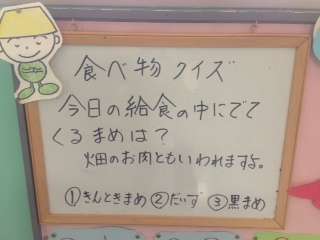 食べ物 クイズ
今日の給食の中にでて
くるまめは?
畑のお肉ともいわれますよ。
①きんときまめ ②だいず ③黒まめ